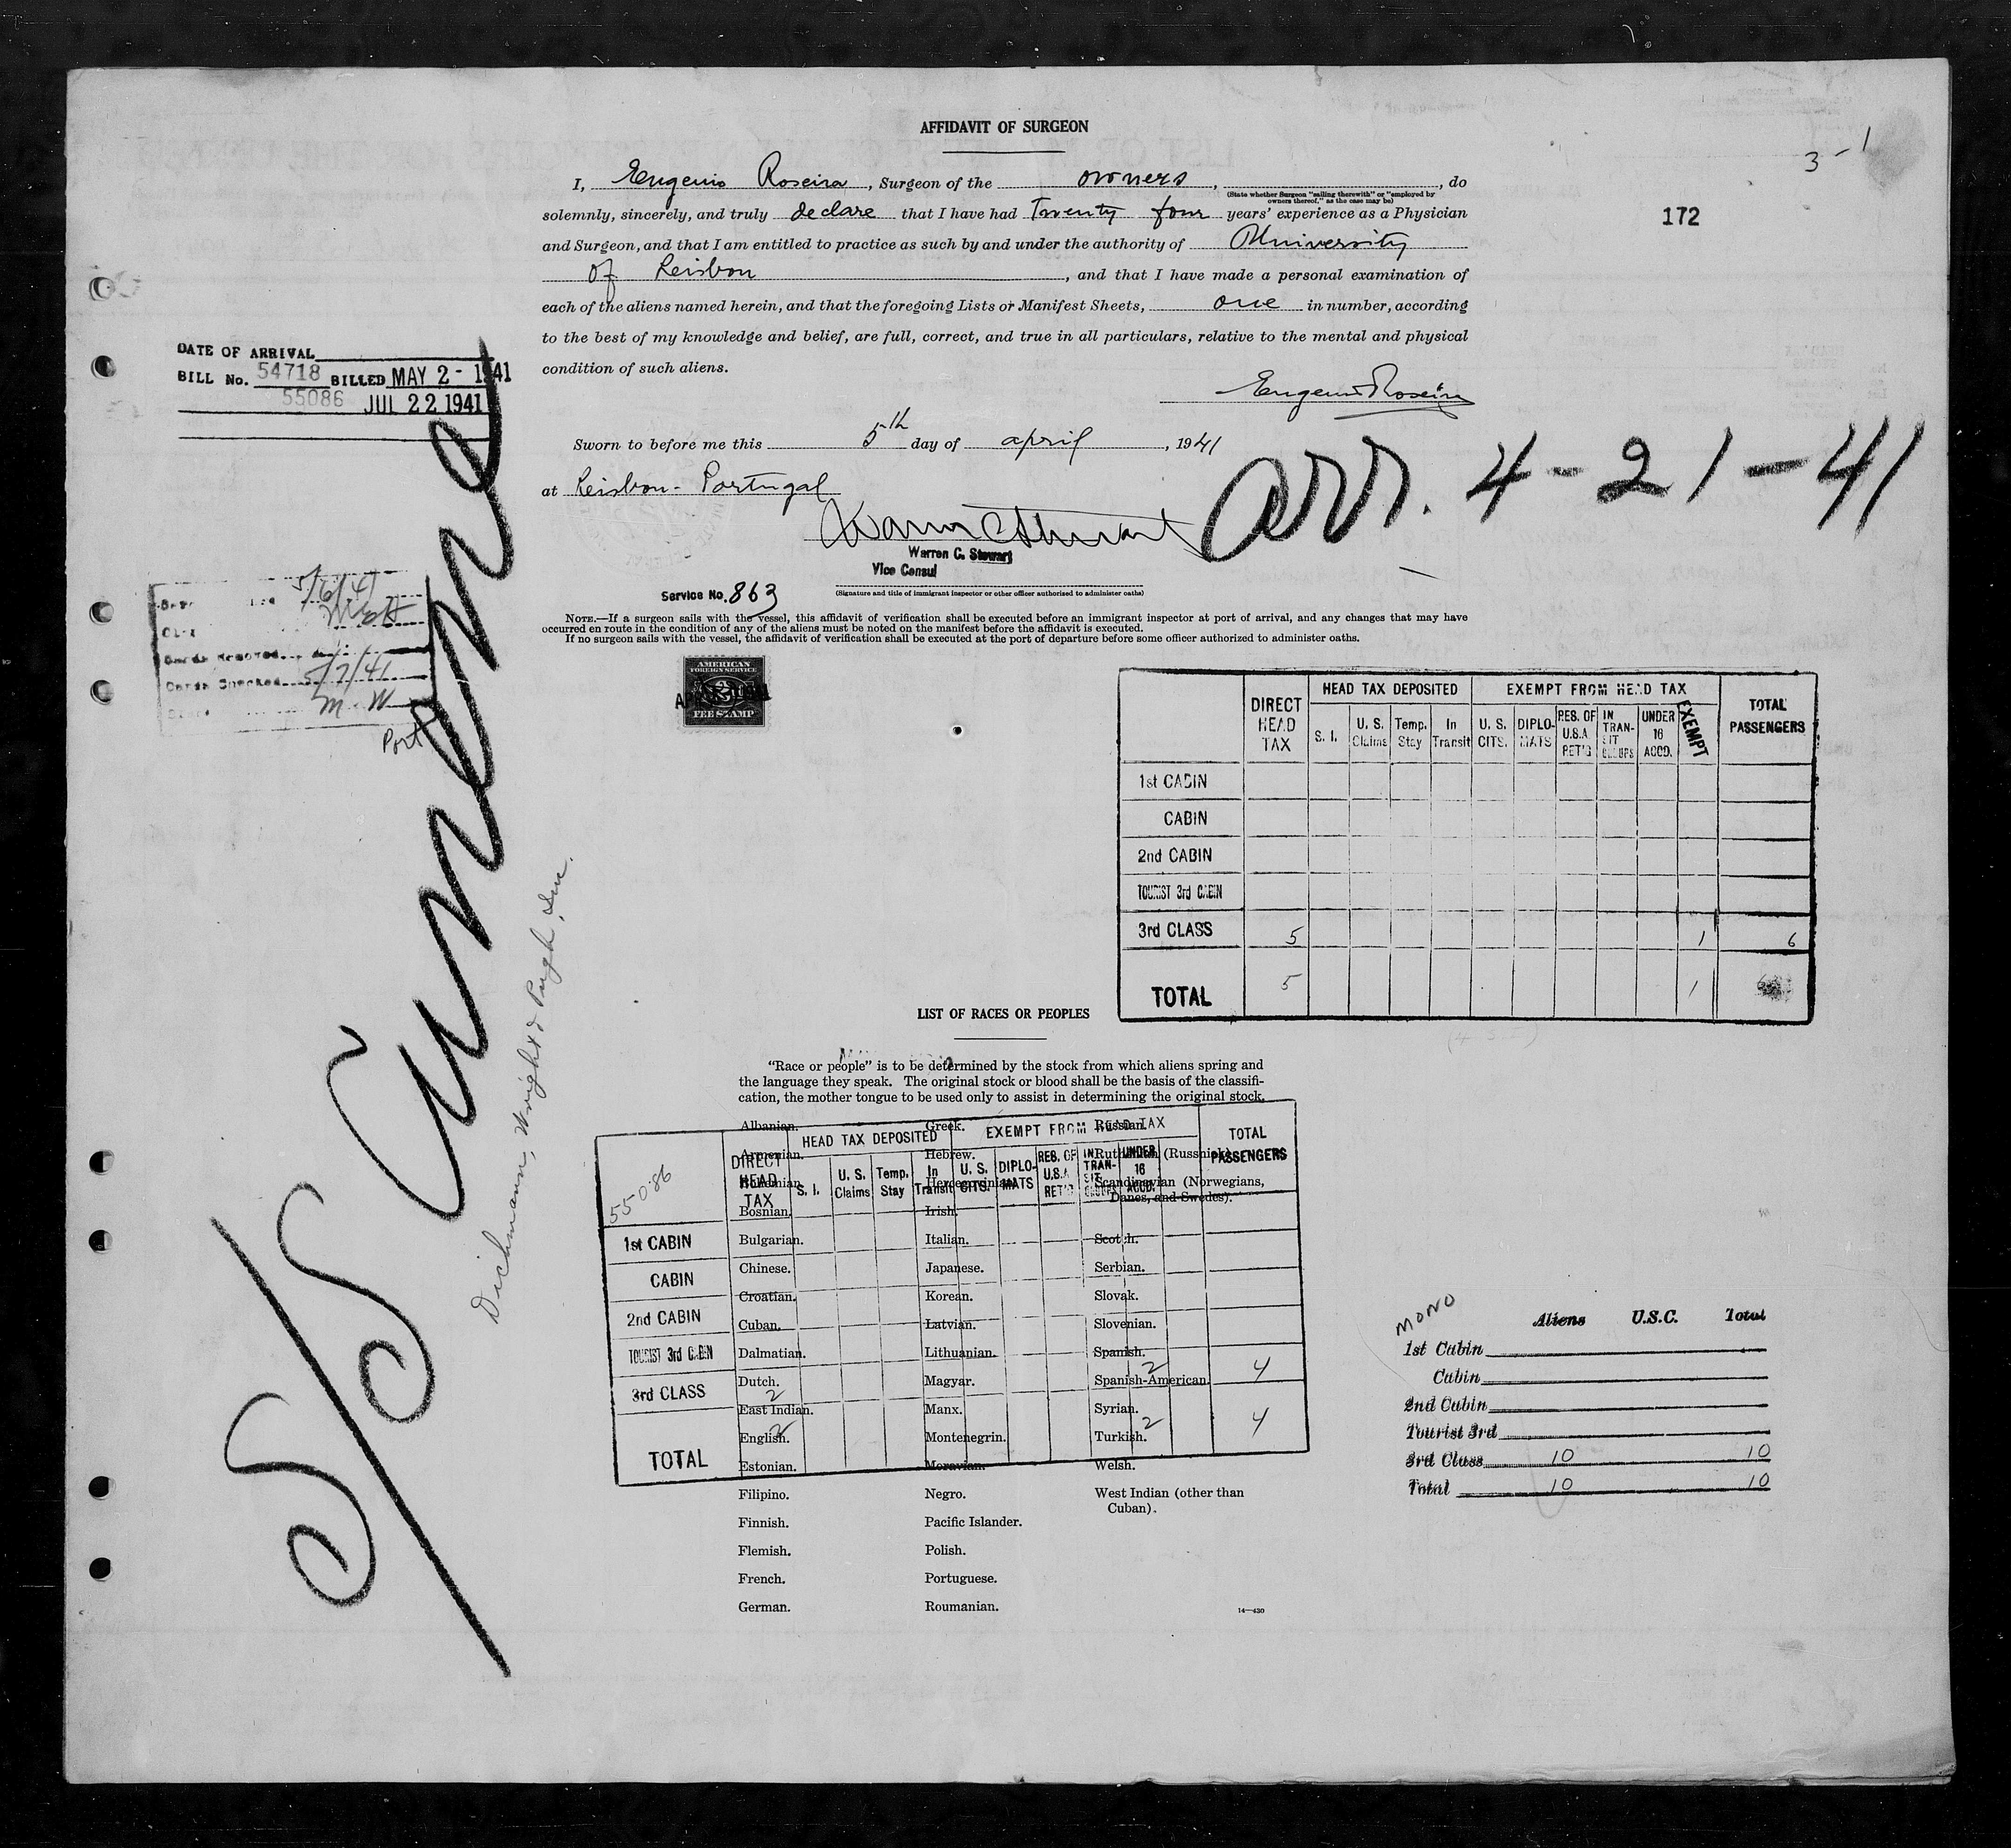 AFFIDAVIT OF SURGEON
3 - 1
172
I, Eugenio Roseira, Surgeon of the owners, , do
(State whether Surgeon "sailing therewith" or "employed by
owners thereof," as the case may be)
solemnly, sincerely, and truly declare that I have had Twenty four years' experience as a Physician
and Surgeon, and that I am entitled to practice as such by and under the authority of University
of Leisbon, and that I have made a personal examination of
each of the aliens named herein, and that the foregoing Lists or Manifest Sheets, one in number, according
to the best of my knowledge and belief, are full, correct, and true in all particulars, relative to the mental and physical
condition of such aliens.
Eugenio Roseira
DATE OF ARRIVAL
BILL No. 54718 BILLED MAY 2 - 1941
55086 JUL 22 1941
Sworn to before me this 5th day of april, 1941
at Leisbon - Portugal
arr. 4-21-41
Warren C Stewart
Warren C. Stewart
Vice Consul
Service No. 863
(Signature and title of immigrant inspector or other officer authorized to administer oaths)
NOTE.—If a surgeon sails with the vessel, this affidavit of verification shall be executed before an immigrant inspector at port of arrival, and any changes that may have
occurred en route in the condition of any of the aliens must be noted on the manifest before the affidavit is executed.
If no surgeon sails with the vessel, the affidavit of verification shall be executed at the port of departure before some officer authorized to administer oaths.
5/6/41
Cards Checked 5/7/41
M W
Port
AMERICAN
FOREIGN SERVICE
FEE STAMP
S/S
Dichmann, Wright & Pugh, Inc.
DIRECT HEAD TAX
HEAD TAX DEPOSITED
EXEMPT FROM HEAD TAX
TOTAL PASSENGERS
S. I.
U. S. Claims
Temp. Stay
In Transit
U. S. CITS.
DIPLOMATS
RES. OF U.S.A. RET'G
IN TRANSIT GROUPS
UNDER 16 ACCD.
EXEMPT
1st CABIN
CABIN
2nd CABIN
TOURIST 3rd CABIN
3rd CLASS 5 1 6
TOTAL 5 1
LIST OF RACES OR PEOPLES
"Race or people" is to be determined by the stock from which aliens spring and
the language they speak. The original stock or blood shall be the basis of the classifi-
cation, the mother tongue to be used only to assist in determining the original stock.
Albanian. Greek. Russian.
Armenian. Hebrew. Ruthenian (Russniak).
Bohemian. Herzegovinian. Scandinavian (Norwegians,
Danes, and Swedes).
Bosnian. Irish.
Bulgarian. Italian. Scotch.
Chinese. Japanese. Serbian.
Croatian. Korean. Slovak.
Cuban. Latvian. Slovenian.
Dalmatian. Lithuanian. Spanish.
Dutch. Magyar. Spanish-American.
East Indian. Manx. Syrian.
English. Montenegrin. Turkish.
Estonian. Moravian. Welsh.
Filipino. Negro. West Indian (other than
Cuban).
Finnish. Pacific Islander.
Flemish. Polish.
French. Portuguese.
German. Roumanian.
14—430
55086
DIRECT HEAD TAX
HEAD TAX DEPOSITED
EXEMPT FROM HEAD TAX
TOTAL PASSENGERS
S. I.
U. S. Claims
Temp. Stay
In Transit
U. S. CITS.
DIPLOMATS
RES. OF U.S.A. RET'G
IN TRANSIT GROUPS
UNDER 16 ACCD.
1st CABIN
CABIN
2nd CABIN
TOURIST 3rd CABIN
3rd CLASS 2 2 4
TOTAL 2 2 4
MONO
Aliens U.S.C. Total
1st Cabin
Cabin
2nd Cabin
Tourist 3rd
3rd Class 10 10
Total 10 10